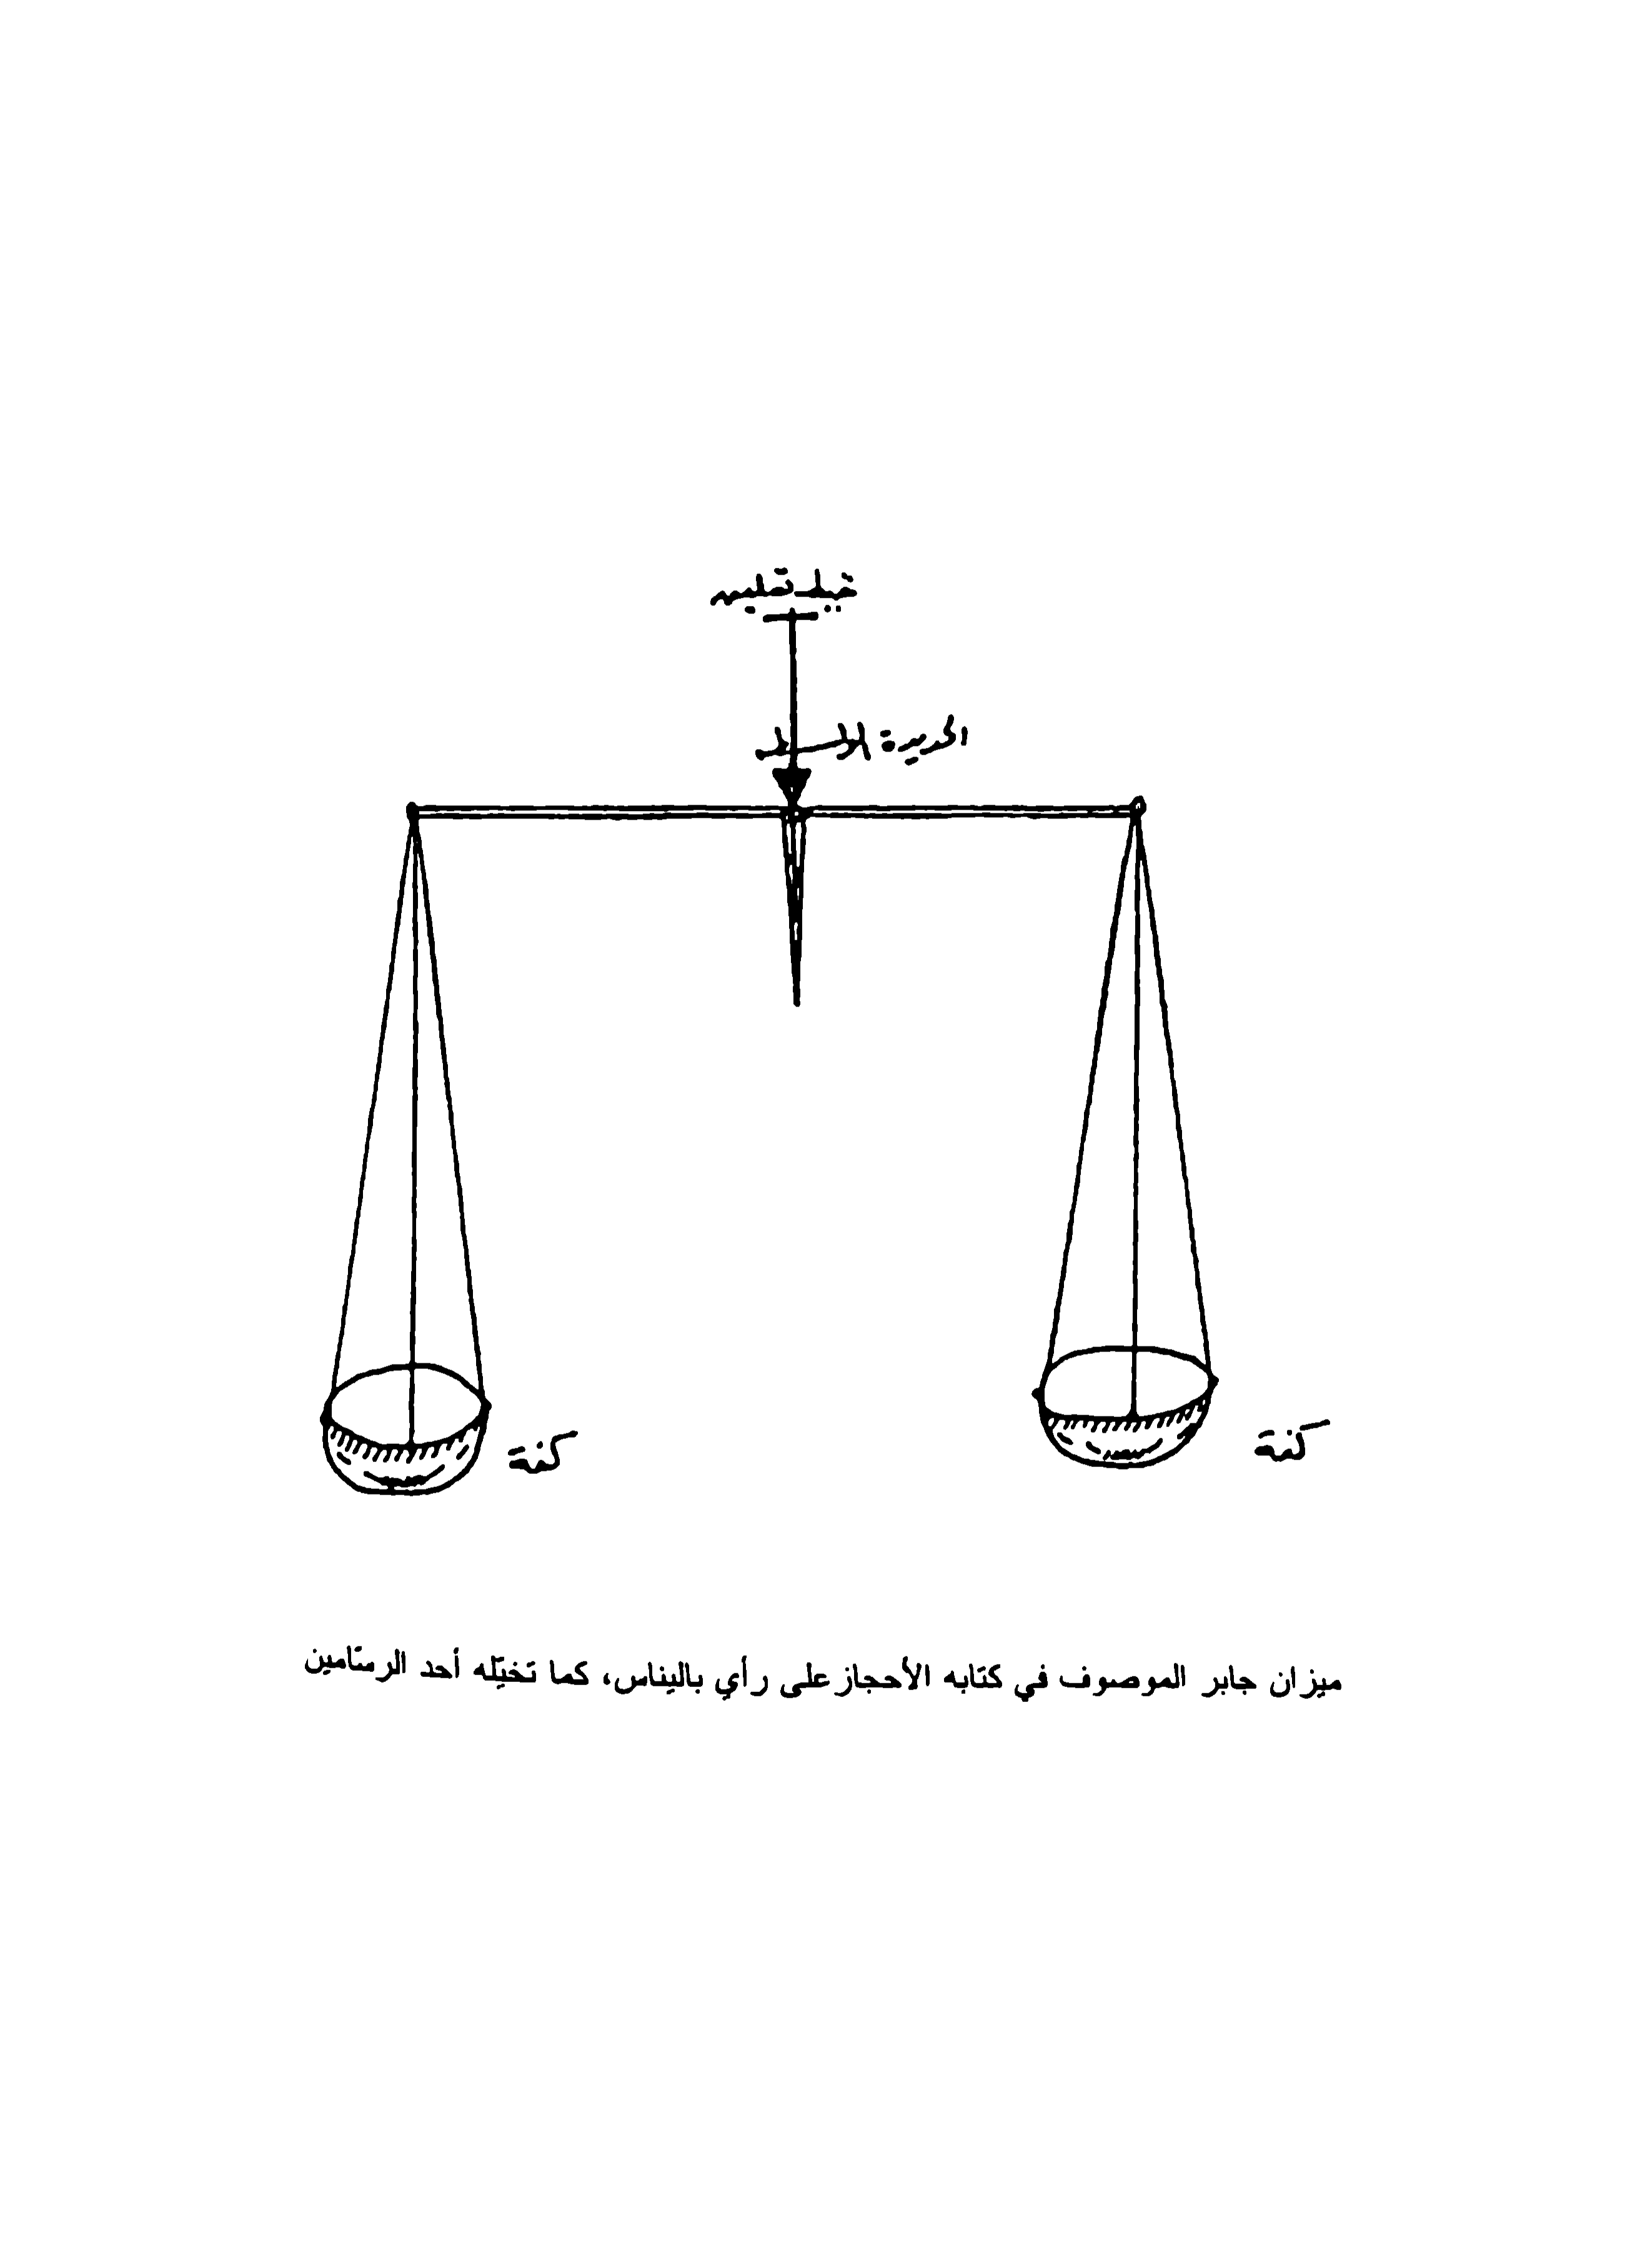 خيط تعليق
الحديدة الوسطى
كفة
كفة
ميزان جابر الموصوف في كتابه الأحجاز على رأي باليناس، كما تخيّله أحد الرسّامين